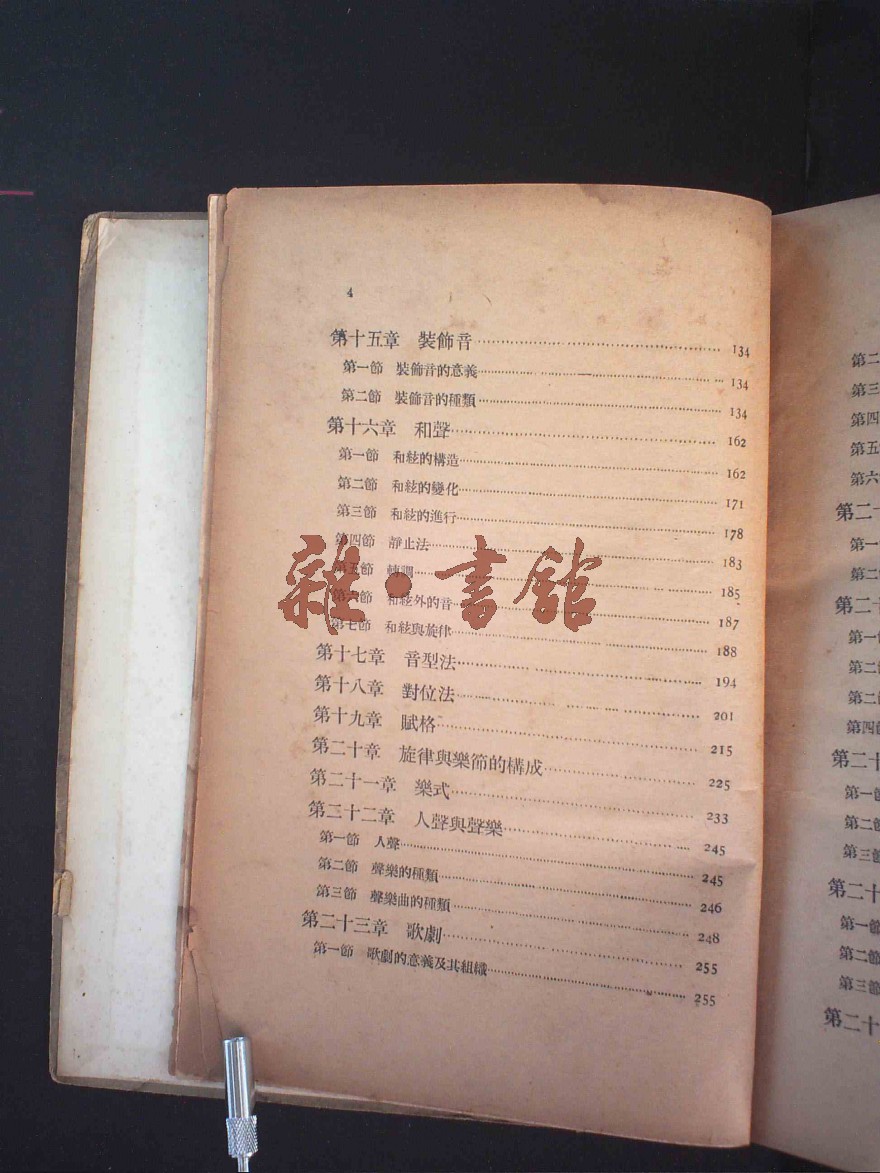 4
第十五章 裝飾音 134
第一節 裝飾音的意義 134
第二節 裝飾音的種類 134
第十六章 和聲 162
第一節 和絃的構造 162
第二節 和絃的變化 171
第三節 和絃的進行 178
第四節 靜止法 183
第五節 轉調 185
第六節 和絃外的音 187
第七節 和絃與旋律 188
第十七章 音型法 194
第十八章 對位法 201
第十九章 賦格 215
第二十章 旋律與樂節的構成 225
第二十一章 樂式 233
第二十二章 人聲與聲樂 245
第一節 人聲 245
第二節 聲樂的種類 246
第三節 聲樂曲的種類 248
第二十三章 歌劇 255
第一節 歌劇的意義及其組織 255
雜·書館
第二
第三
第四
第五
第六
第二十
第一
第二
第二十
第一
第二
第二
第四
第二十
第一
第二
第三
第二十
第一
第二
第三
第二十